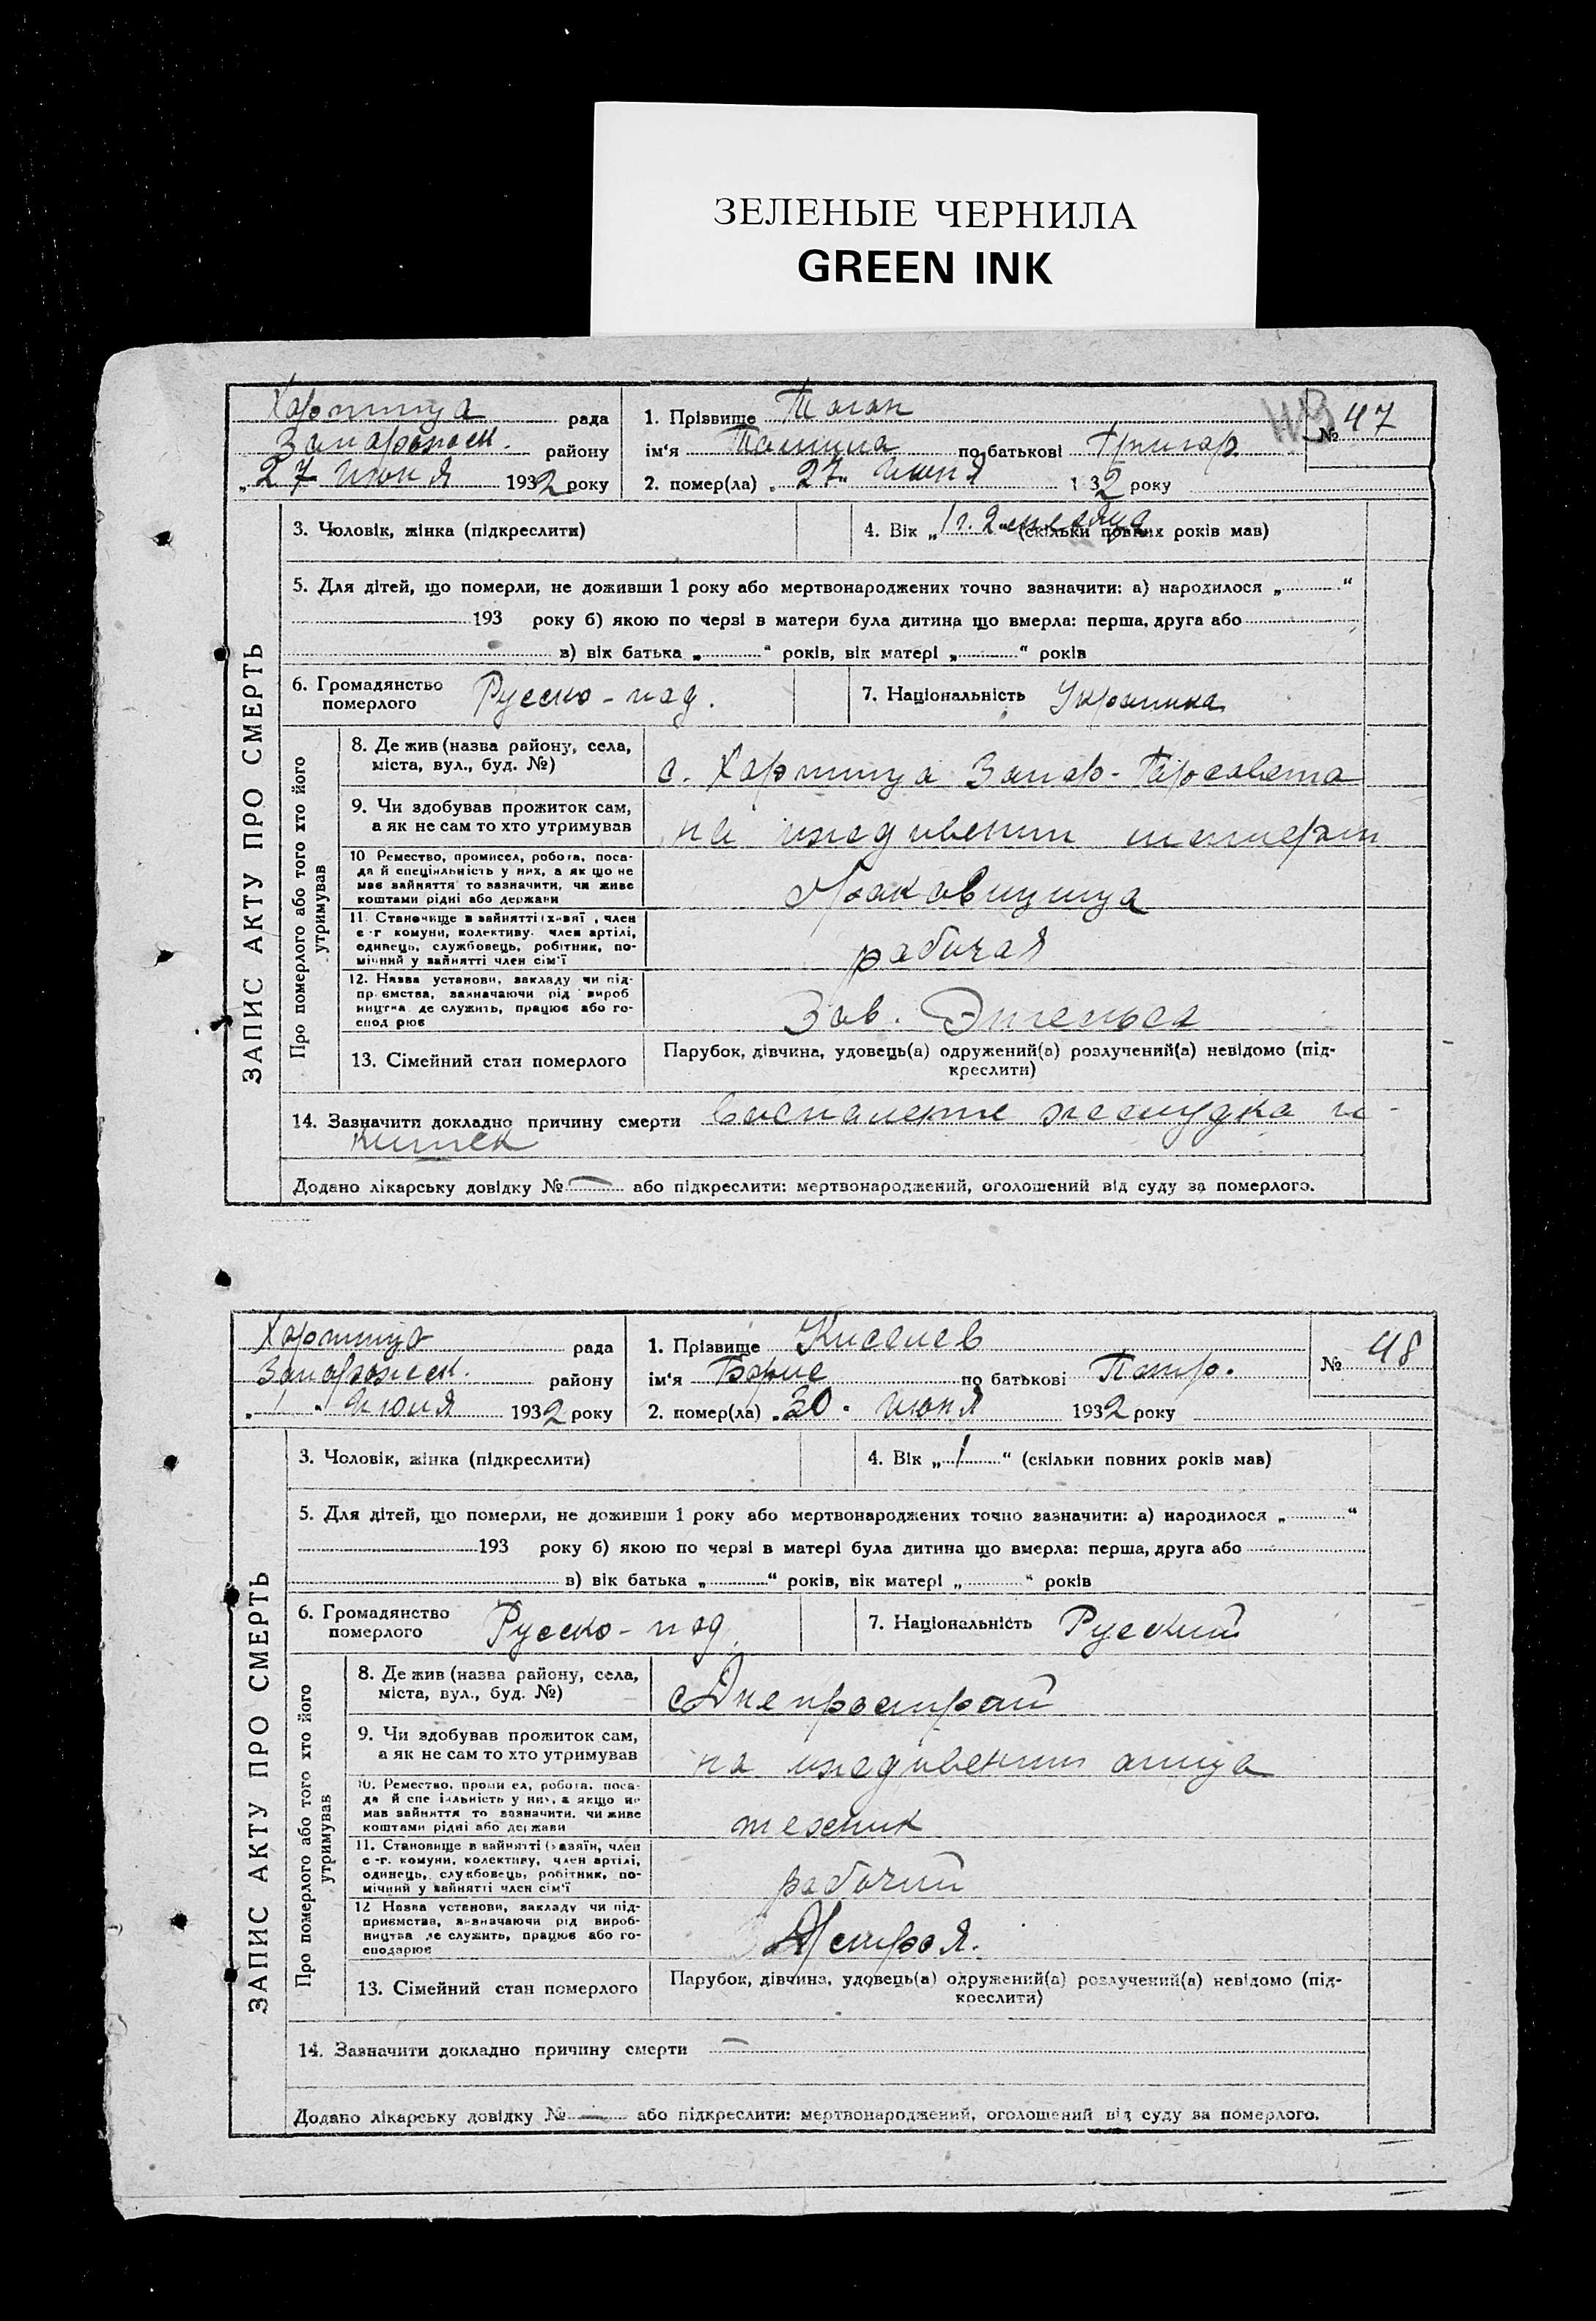 ЗЕЛЕНЫЕ ЧЕРНИЛА
GREEN INK
Хортица рада
Запорожск. району
„27 июня 1932 року
1. Прізвище
ім'я по батькові Григор
2. помер(ла) „27 июня 1932 року
№ 47
ЗАПИС АКТУ ПРО СМЕРТЬ
3. Чоловік, жінка (підкреслити)
4. Вік „1 г. 2 месяца (скільки повних років мав)
5. Для дітей, що померли, не доживши 1 року або мертвонароджених точно зазначити: а) народилося „ “
193 року б) якою по черзі в матери була дитина що вмерла: перша, друга або
в) вік батька „ “ років, вік матері „ “ років
6. Громадянство
померлого
Русско-под.
7. Національність Украинка
Про померлого або того хто його
утримував
8. Де жив (назва району, села,
міста, вул., буд. №)
с. Хортица Запор-
9. Чи здобував прожиток сам,
а як не сам то хто утримував
на иждивении матери
10 Ремество, промисел, робота, поса-
да й спеціяльність у них, а як що не
має зайняття то зазначити, чи живе
коштами рідні або держави
11. Становище в зайнятті (хазяї , член
с-г комуни, колективу. член артілі,
одинець, службовець, робітник, по-
мічний у зайнятті член сім'ї
рабочая
12. Назва установи, закладу чи під-
пр ємства, зазначаючи рід вироб
ництва де служить, працює або го-
спод рює
Зав. Энгельса
13. Сімейний стан померлого
Парубок, дівчина, удовець(а) одружений(а) розлучений(а) невідомо (під-
креслити)
14. Зазначити докладно причину смерти Воспаление желудка и
кишек
Додано лікарську довідку № — або підкреслити: мертвонароджений, оголошений від суду за померлого.
Хортица рада
Запорожск. району
„1 „ Июля 1932 року
1. Прізвище Киселев
ім'я Борис по батькові Петр.
2. помер(ла) „30 „ июня 1932 року
№ 48
ЗАПИС АКТУ ПРО СМЕРТЬ
3. Чоловік, жінка (підкреслити)
4. Вік „ 1 “ (скільки повних років мав)
5. Для дітей, що померли, не доживши 1 року або мертвонароджених точно зазначити: а) народилося „ “
193 року б) якою по черзі в матері була дитина що вмерла: перша, друга або
в) вік батька „ “ років, вік матері „ “ років
6. Громадянство
померлого
Русско-под.
7. Національність Русский
Про померлого або того хто його
утримував
8. Де жив (назва району, села,
міста, вул., буд. №)
Днепрострой
9. Чи здобував прожиток сам,
а як не сам то хто утримував
на иждивении отца
10. Ремество, проми ел, робота, поса-
да й спе іяльність у них, а якщо не
мав зайняття то зазначити, чи живе
коштами рідні або держави
техник
11. Становище в зайнятті (хазяїн, член
с-г. комуни, колективу, член артілі,
одинець, службовець, робітник, по-
мічний у зайнятті член сім'ї
рабочий
12 Назва установи, закладу чи під-
приємства, зазначаючи рід вироб-
ництва де служить, працює або го-
сподарює
13. Сімейний стан померлого
Парубок, дівчина, удовець(а) одружений(а) розлучений(а) невідомо (під-
креслити)
14. Зазначити докладно причину смерти —
Додано лікарську довідку № — або підкреслити: мертвонароджений, оголошений від суду за померлого.